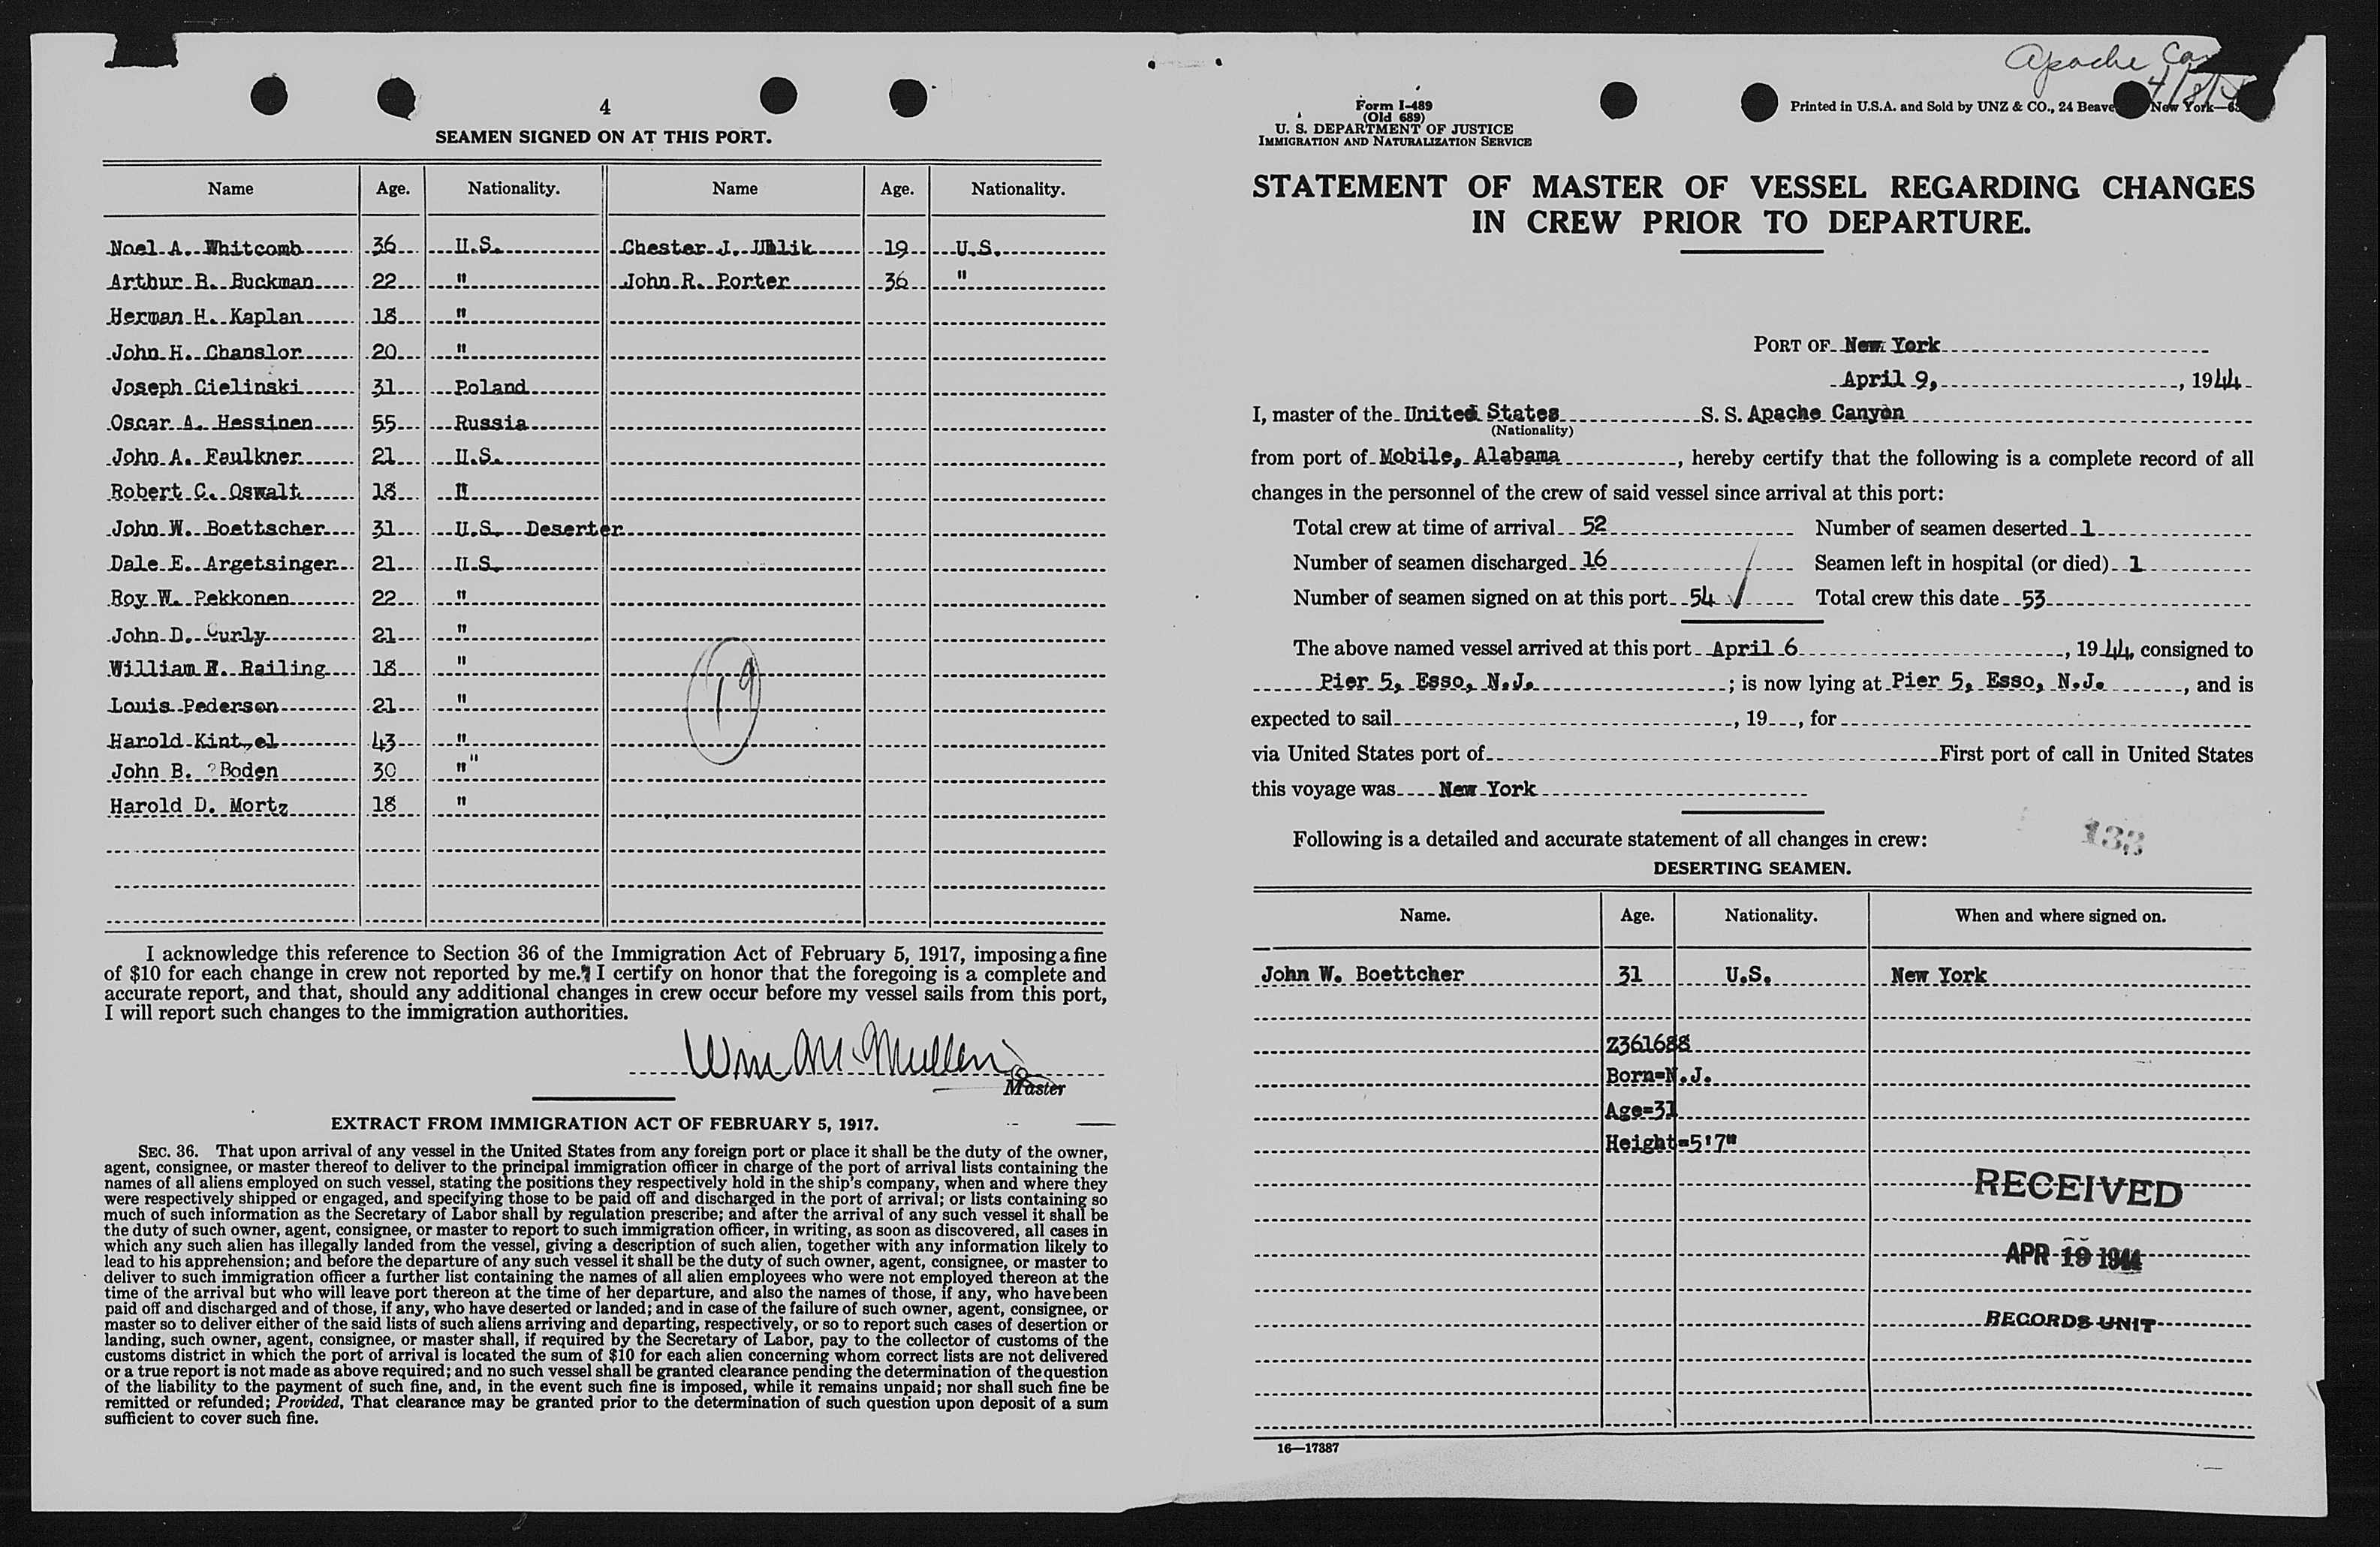 4
SEAMEN SIGNED ON AT THIS PORT.
Name Age. Nationality. Name Age. Nationality.
Noel A. Whitcomb 36 U.S. Chester J. Uhlik 19 U.S.
Arthur B. Buckman 22 " John R. Porter 36 "
Herman H. Kaplan 18 "
John H. Chanslor 20 "
Joseph Cielinski 31 Poland
Oscar A. Hessinen 55 Russia
John A. Faulkner 21 U.S.
Robert C. Oswalt 18 "
John W. Boettscher 31 U.S. Deserter
Dale E. Argetsinger 21 U.S.
Roy W. Pekkonen 22 "
John D. Curly 21 "
William Railing 18 "
Louis Pederson 21 "
19
Harold Kint el 43 "
John B. ?Boden 30 " "
Harold D. Mortz 18 "
I acknowledge this reference to Section 36 of the Immigration Act of February 5, 1917, imposing a fine
of $10 for each change in crew not reported by me. I certify on honor that the foregoing is a complete and
accurate report, and that, should any additional changes in crew occur before my vessel sails from this port,
I will report such changes to the immigration authorities.
Wm McMullen
Master
EXTRACT FROM IMMIGRATION ACT OF FEBRUARY 5, 1917.
SEC. 36. That upon arrival of any vessel in the United States from any foreign port or place it shall be the duty of the owner,
agent, consignee, or master thereof to deliver to the principal immigration officer in charge of the port of arrival lists containing the
names of all aliens employed on such vessel, stating the positions they respectively hold in the ship's company, when and where they
were respectively shipped or engaged, and specifying those to be paid off and discharged in the port of arrival; or lists containing so
much of such information as the Secretary of Labor shall by regulation prescribe; and after the arrival of any such vessel it shall be
the duty of such owner, agent, consignee, or master to report to such immigration officer, in writing, as soon as discovered, all cases in
which any such alien has illegally landed from the vessel, giving a description of such alien, together with any information likely to
lead to his apprehension; and before the departure of any such vessel it shall be the duty of such owner, agent, consignee, or master to
deliver to such immigration officer a further list containing the names of all alien employees who were not employed thereon at the
time of the arrival but who will leave port thereon at the time of her departure, and also the names of those, if any, who have been
paid off and discharged and of those, if any, who have deserted or landed; and in case of the failure of such owner, agent, consignee, or
master so to deliver either of the said lists of such aliens arriving and departing, respectively, or so to report such cases of desertion or
landing, such owner, agent, consignee, or master shall, if required by the Secretary of Labor, pay to the collector of customs of the
customs district in which the port of arrival is located the sum of $10 for each alien concerning whom correct lists are not delivered
or a true report is not made as above required; and no such vessel shall be granted clearance pending the determination of the question
of the liability to the payment of such fine, and, in the event such fine is imposed, while it remains unpaid; nor shall such fine be
remitted or refunded; Provided, That clearance may be granted prior to the determination of such question upon deposit of a sum
sufficient to cover such fine.
Apache Ca
4/8/
Form I-489
(Old 689)
U. S. DEPARTMENT OF JUSTICE
IMMIGRATION AND NATURALIZATION SERVICE
Printed in U.S.A. and Sold by UNZ & CO., 24 Beave New York—6
STATEMENT OF MASTER OF VESSEL REGARDING CHANGES
IN CREW PRIOR TO DEPARTURE.
PORT OF New York
April 9, , 1944
I, master of the United States S. S. Apache Canyon
(Nationality)
from port of Mobile, Alabama , hereby certify that the following is a complete record of all
changes in the personnel of the crew of said vessel since arrival at this port:
Total crew at time of arrival 52 Number of seamen deserted 1
Number of seamen discharged 16 Seamen left in hospital (or died) 1
Number of seamen signed on at this port 54 ✓ Total crew this date 53
The above named vessel arrived at this port April 6 , 1944, consigned to
Pier 5, Esso, N.J. ; is now lying at Pier 5, Esso, N.J. , and is
expected to sail , 19 , for
via United States port of First port of call in United States
this voyage was New York
Following is a detailed and accurate statement of all changes in crew:
133
DESERTING SEAMEN.
Name. Age. Nationality. When and where signed on.
John W. Boettcher 31 U.S. New York
Z361688
Born=N.J.
Age=31
Height=5'7"
RECEIVED
APR 19 1944
RECORDS UNIT
16—17887